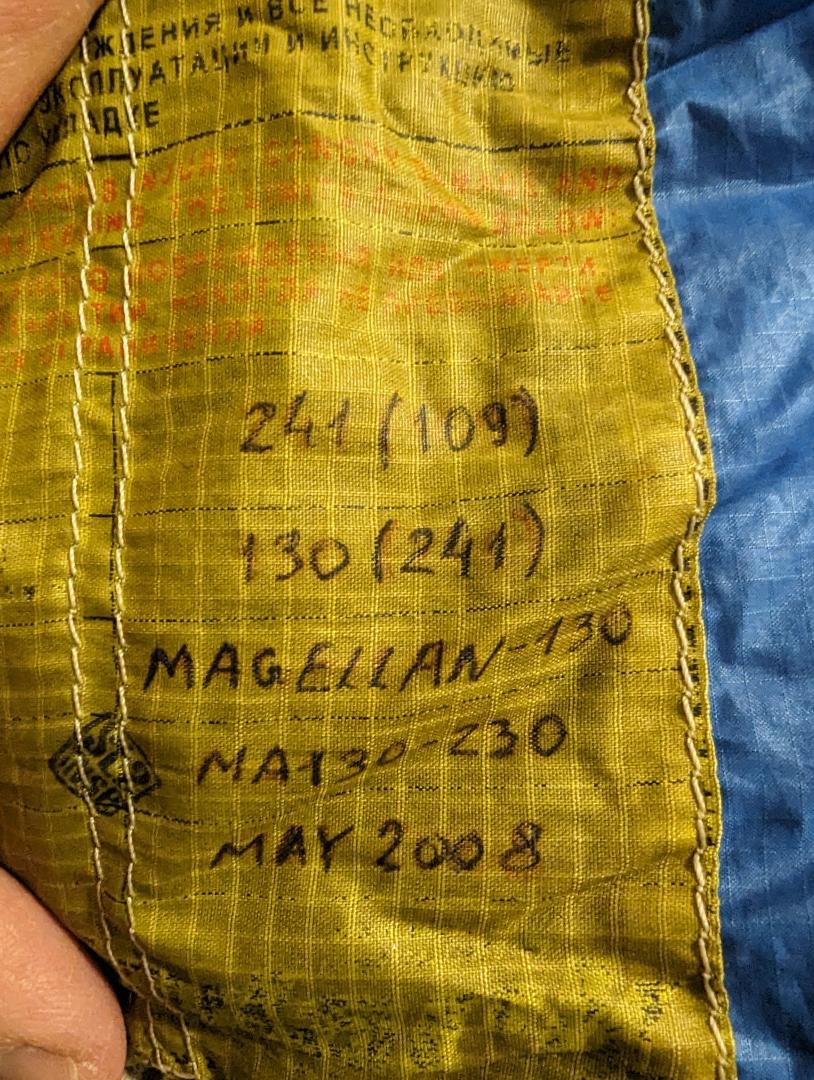 ЖДЕНИЯ И ВСЕ НЕОБХОДИМЫЕ
ЭКСПЛУАТАЦИИ И ИНСТРУКЦИЮ
ПО УКЛАДКЕ
INJURY, CANOPY DAMAGE AND
THE LIMITS BELOW
ПОВРЕЖДЕНИЯ ИЛИ СМЕРТИ,
НИКОГДА НЕ ПРЕВЫШАЙТЕ
241 (109)
130 (241)
MAGELLAN-130
MA130-230
MAY 2008